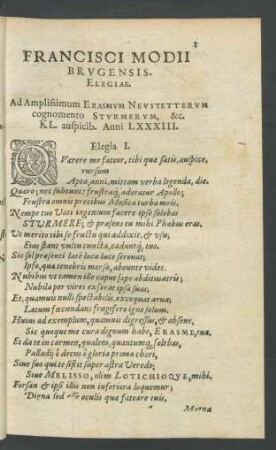 1
FRANCISCI MODII
BRVGENSIS.
ELEGIAE.
Ad Amplissimum ERASMVM NEVSTETTERVM
cognomento STVRMERVM, &c.
KL. auspicib. Anni LXXXIII.
Elegia I.
QVærere me fateor, tibi quæ satis, auspice,
rursum
Apta, anni, mittam verba legenda, die.
Quæro; nec subeunt: frustraq́, adoratur Apollo;
Frustra omnis precibus Musica turba meis.
Nempe tuo Vati ingenium facere ipse solebas
STVRMERE; & præsens tu mihi Phœbus eras.
Vt merito tibi se fructu qui adduxit, & vsu,
Eius stant vultu cuncta, caduntq́, tuo.
Sic sol præsenti latè loca luce serenat;
Ipso, quæ tenebris mersa, abeunte videt.
Nubibus et tamen ille caput sæpe abdit in atris;
Nubila per vires exserat ipse suas:
Et, quamuis nulli spectabilis, excoquat arua;
Latum fœcundans frugifero igne solum.
Huius ad exemplum, quamuis digressus, & absens,
Sic quoque me cura dignum habe, ERASME, tua.
Et da te in carmen, qualem, quantumq́, solebas,
Palladij ô decus ô gloria prima chori,
Siue suo qui te sistit super astra Veredo;
Siue MELISSO, olim LOTICHIOQVE, mihi.
Forsan & ipsi illis non inferiora loquemur;
Digna sed esse oculis quæ fateare tuis.
Magna